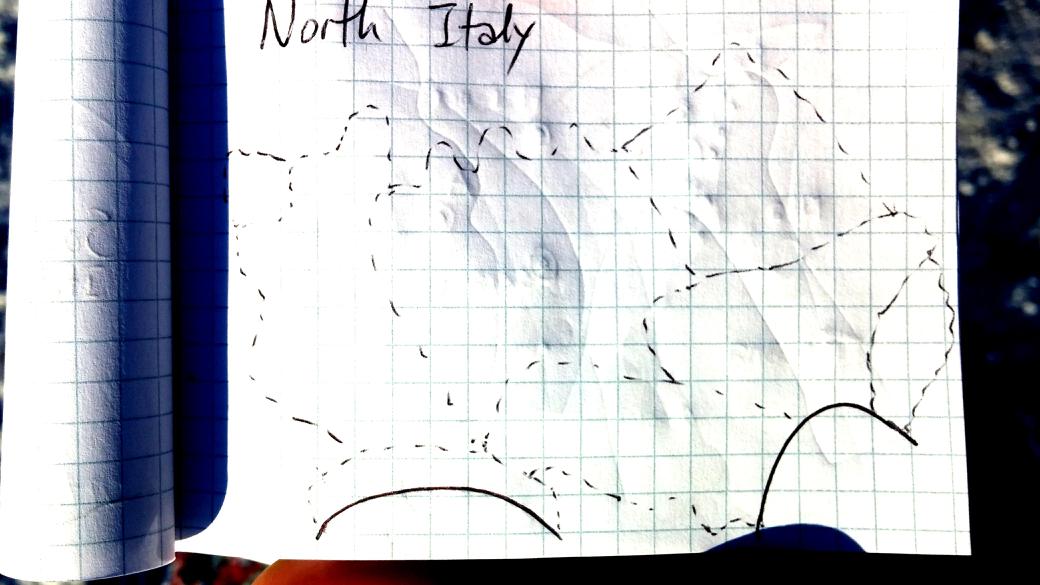 North Italy